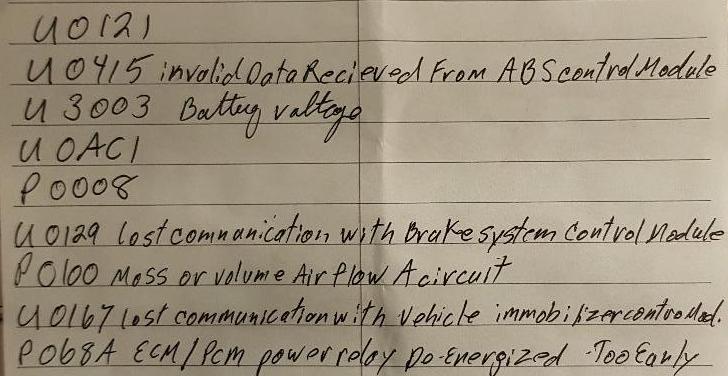 U0121
U0415 invalid Data Recieved From ABS control Module
U3003 Battery valtage
U0AC1
P0008
U0129 lost comnunication with Brake system Control Module
P0100 Mass or volume Air flow A circuit
U0167 lost communication with Vehicle immobilizer contro Mod.
P068A ECM/Pcm power relay De-Energized -Too Early